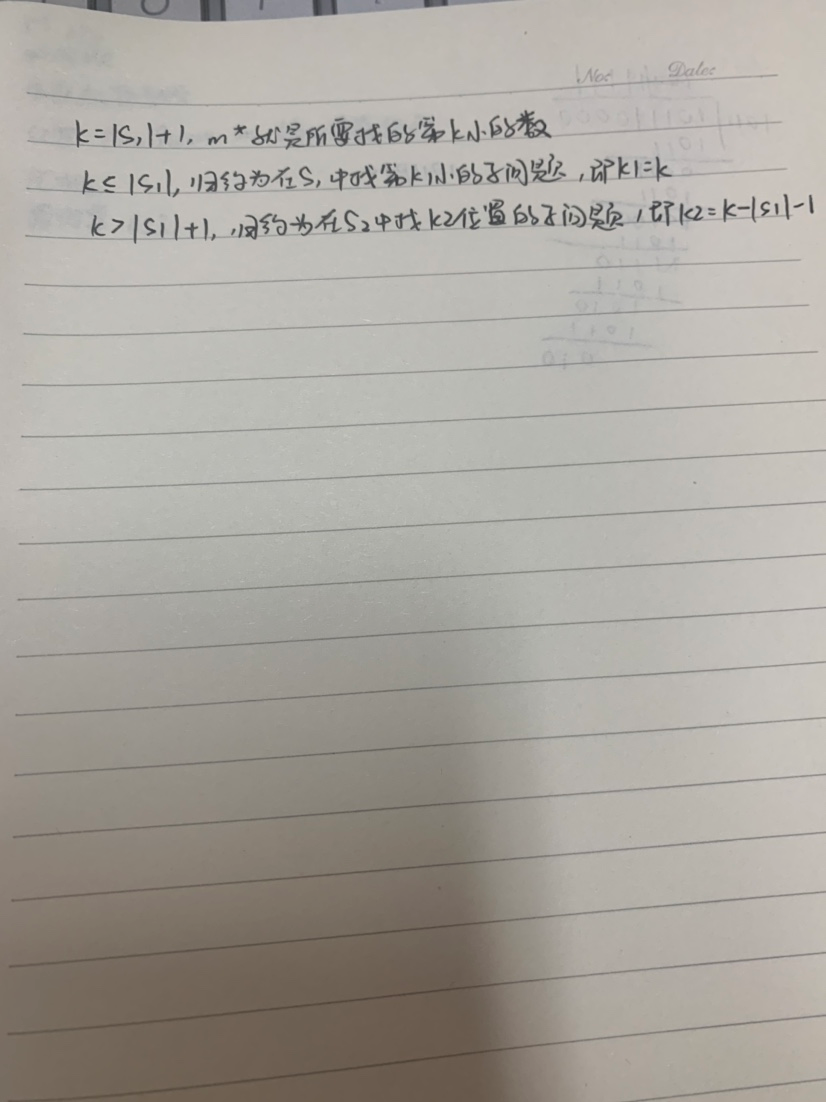 No: Date:
k=|S₁|+1, m*就是所要找的第k小的数
k≤|S₁|, 归约为在S₁中找第k1小的子问题，即k1=k
k>|S₁|+1, 归约为在S₂中找k2位置的子问题，即k2=k-|S₁|-1